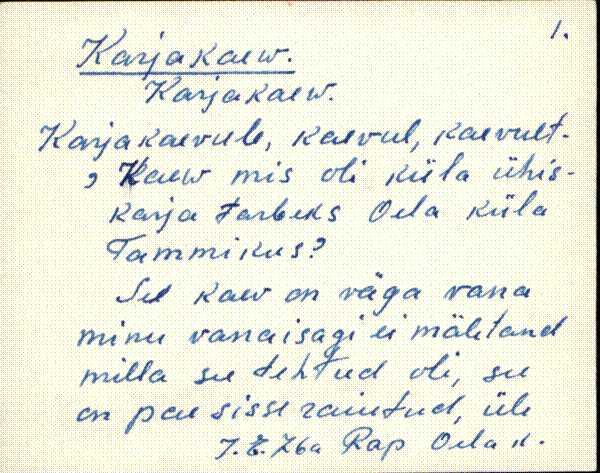 1.
Karjakaew.
Karjakaew.
Karjakaevule, kaevul, kaevult.
, Kaew mis oli küla ühis-
karja tarbeks Oela küla
Tammikus?
See kaev on väga vana
minu vanaisagi ei mäletand
milla see tehtud oli, see
on pae sisse raiutud, üle
Rap Oela k.